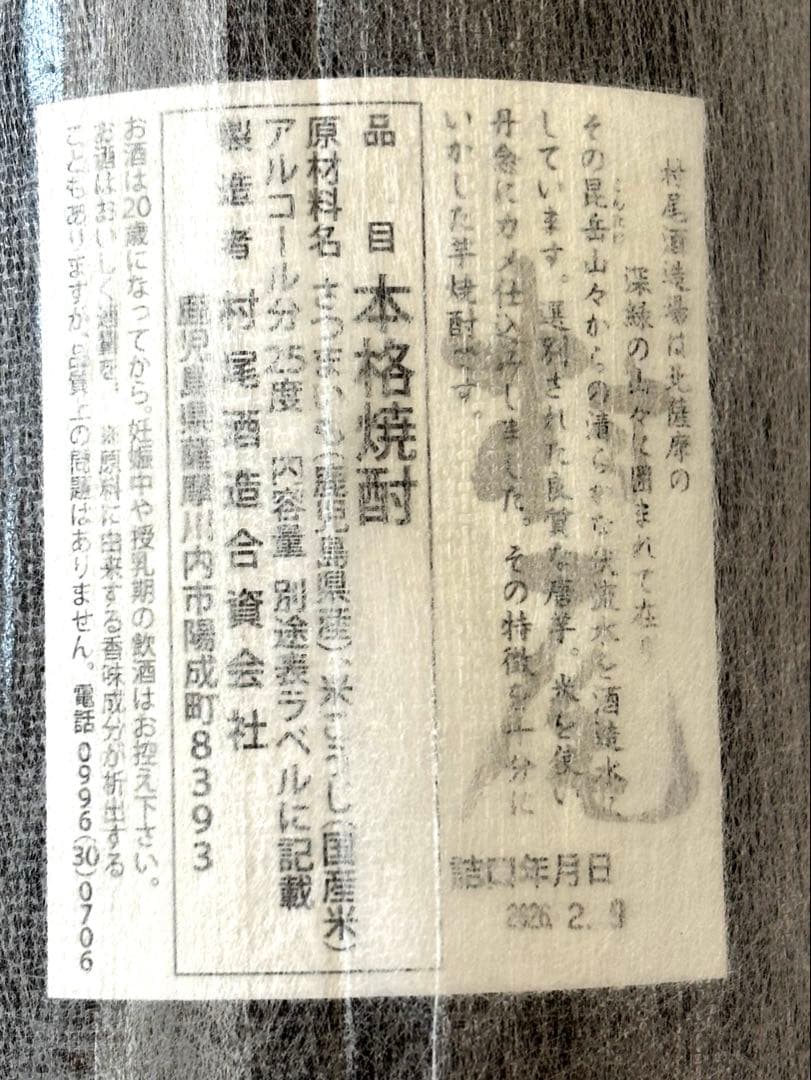 村尾酒造場は北薩摩の
深緑の山々に囲まれて在り
その昆岳山々からの清らかな伏流水を酒造水に
こんたけ
しています。選別された良質な唐芋。米を使い
丹念にカメ仕込みし
いかした芋焼酎です。
その特徴を十分に
詰口年月日
2026. 2. 9
品目 本格焼酎
原材料名 さつまいも(鹿児島県産)、米こうじ(国産米)
アルコール分 25度 内容量 別途表ラベルに記載
製造者 村尾酒造合資会社
鹿児島県薩摩川内市陽成町8393
お酒は20歳になってから。妊娠中や授乳期の飲酒はお控え下さい。
お酒はおいしく適量を。 ※原料に由来する香味成分が析出する
こともありますが、品質上の問題はありません。 電話0996(30)0706